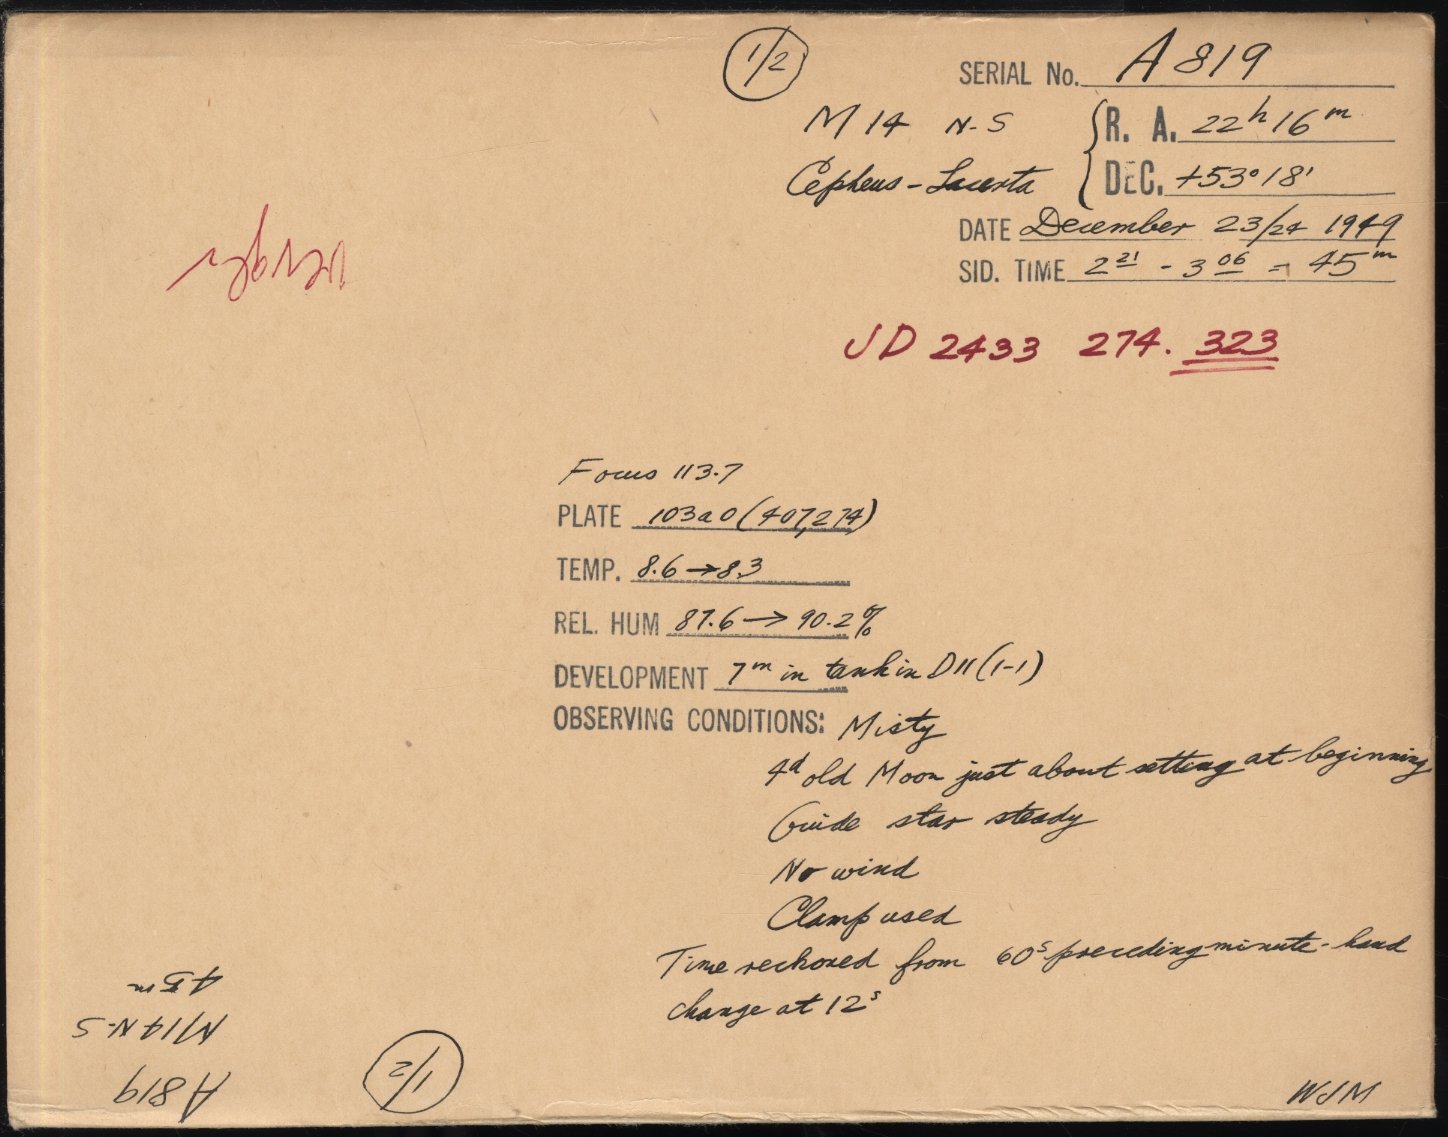 1/2
SERIAL No. A 819
M 14 N-S
R. A. 22h 16m
Cepheus - Lacerta
DEC. +53° 18'
DATE December 23/24 1949
SID. TIME 2 21 - 3 06 = 45m
JD 2433 274. 323
Focus 113.7
PLATE 103a0 (407,274)
TEMP. 8.6 → 8.3
REL. HUM 87.6 → 90.2%
DEVELOPMENT 7m in tank in D11 (1-1)
OBSERVING CONDITIONS: Misty
4d old Moon just about setting at beginning
Guide star steady
No wind
Clamp used
Time reckoned from 60s preceding minute-hand
change at 12s
45m
M14 N-S
A 819
1/2
WJM